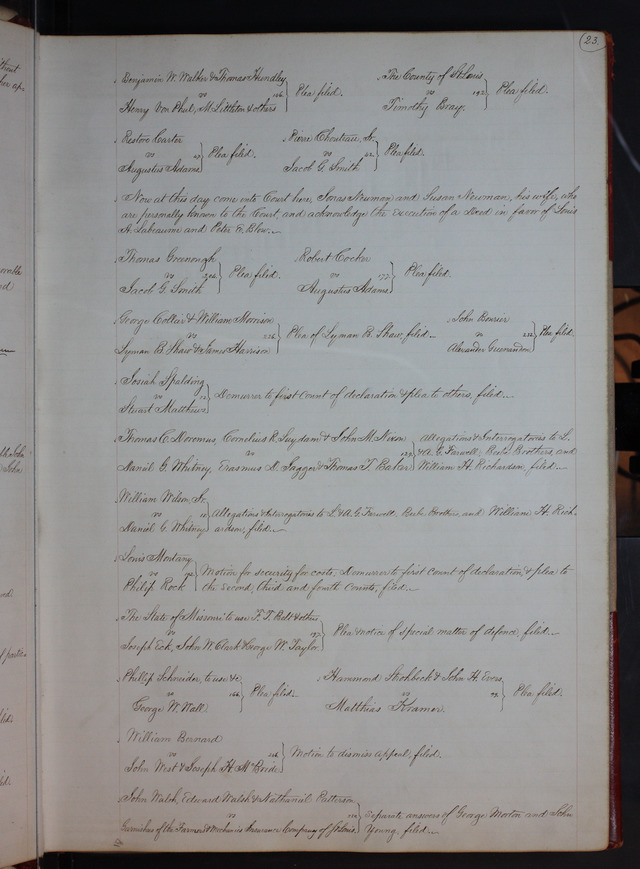 23.
Benjamin W. Walker & Thomas Hundley
vs 146. Plea filed.
Henry Von Phul, M. Littleton & others
The County of St. Louis
vs 192. Plea filed.
Timothy Bray.
Restore Carter
vs Plea filed.
Augustus Adams
Pierre Chouteau, Jr.
vs Plea filed.
Jacob G. Smith
Now at this day come into Court here, Jonas Newman and Susan Newman, his wife, who
are personally known to the Court, and acknowledge the execution of a Deed in favor of Louis
A. Labeaume and Peter E. Blow.
Thomas Greenough
vs 206. Plea filed.
Jacob G. Smith
Robert Cocker
vs 177. Plea filed.
Augustus Adams
George Collier & William Morrison
vs 226. Plea of Lyman B. Shaw, filed.
Lyman B. Shaw & James Harrison
John Bouvier
vs 232. Plea filed.
Alexander
Josiah Spalding
vs 12. Demurrer to first count of declaration & plea to others, filed.
Stuart Matthews
Thomas C. Doremus, Cornelius R. Suydam & John M. Nixon Allegations & Interrogatories to L.
vs 129. & A. G. Farwell, Beebe Brothers, and
Daniel G. Whitney, Erasmus D. & Thomas T. Baker William H. Richardson, filed.
William Wilson, Jr.
vs Allegations & Interrogatories to L. & A. G. Farwell, Beebe Brothers, and William H. Rich-
Daniel G. Whitney ardson, filed.
Louis Montany
vs Motion for security for costs, Demurrer to first count of declaration, & plea to
Philip Rock the second, third and fourth Counts, filed.
The State of Missouri to use F. T. & others
vs 197. Plea & notice of special matter of defence, filed.
Joseph Eck, John W. Clark & George W. Taylor.
Phillip Schneider, to use &c
vs 166. Plea filed.
George W. Wall
Hammond Shohbeck & John H. Evers
vs 79. Plea filed.
Matthias Kramer.
William Bernard
vs Motion to dismiss appeal, filed.
John West & Joseph H. McBride
John Walsh, Edward Walsh & Nathaniel Patterson
vs Separate answers of George Morton and John
Garnishee of the Farmers & Mechanics Insurance Company of St. Louis. Young, filed.